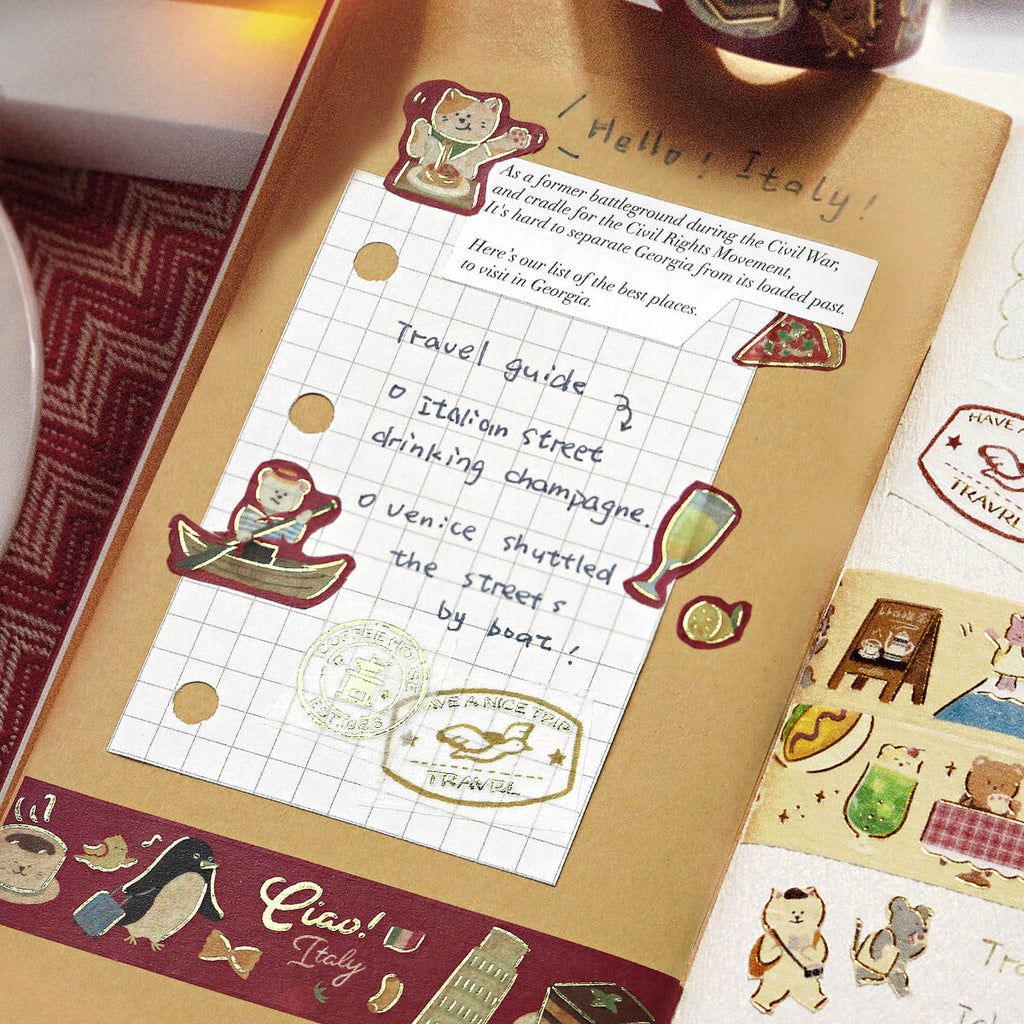 Hello! Italy!
As a former battleground during the Civil War,
and cradle for the Civil Rights Movement,
It's hard to separate Georgia from its loaded past.
Here's our list of the best places.
to visit in Georgia.
Travel guide
Italian street
drinking champagne.
venice shuttled
the streets
by boat!
COFFEE HOUSE
HAVE A NICE TRIP
TRAVRL
Ciao!
Italy
HAVE
TRAVRL